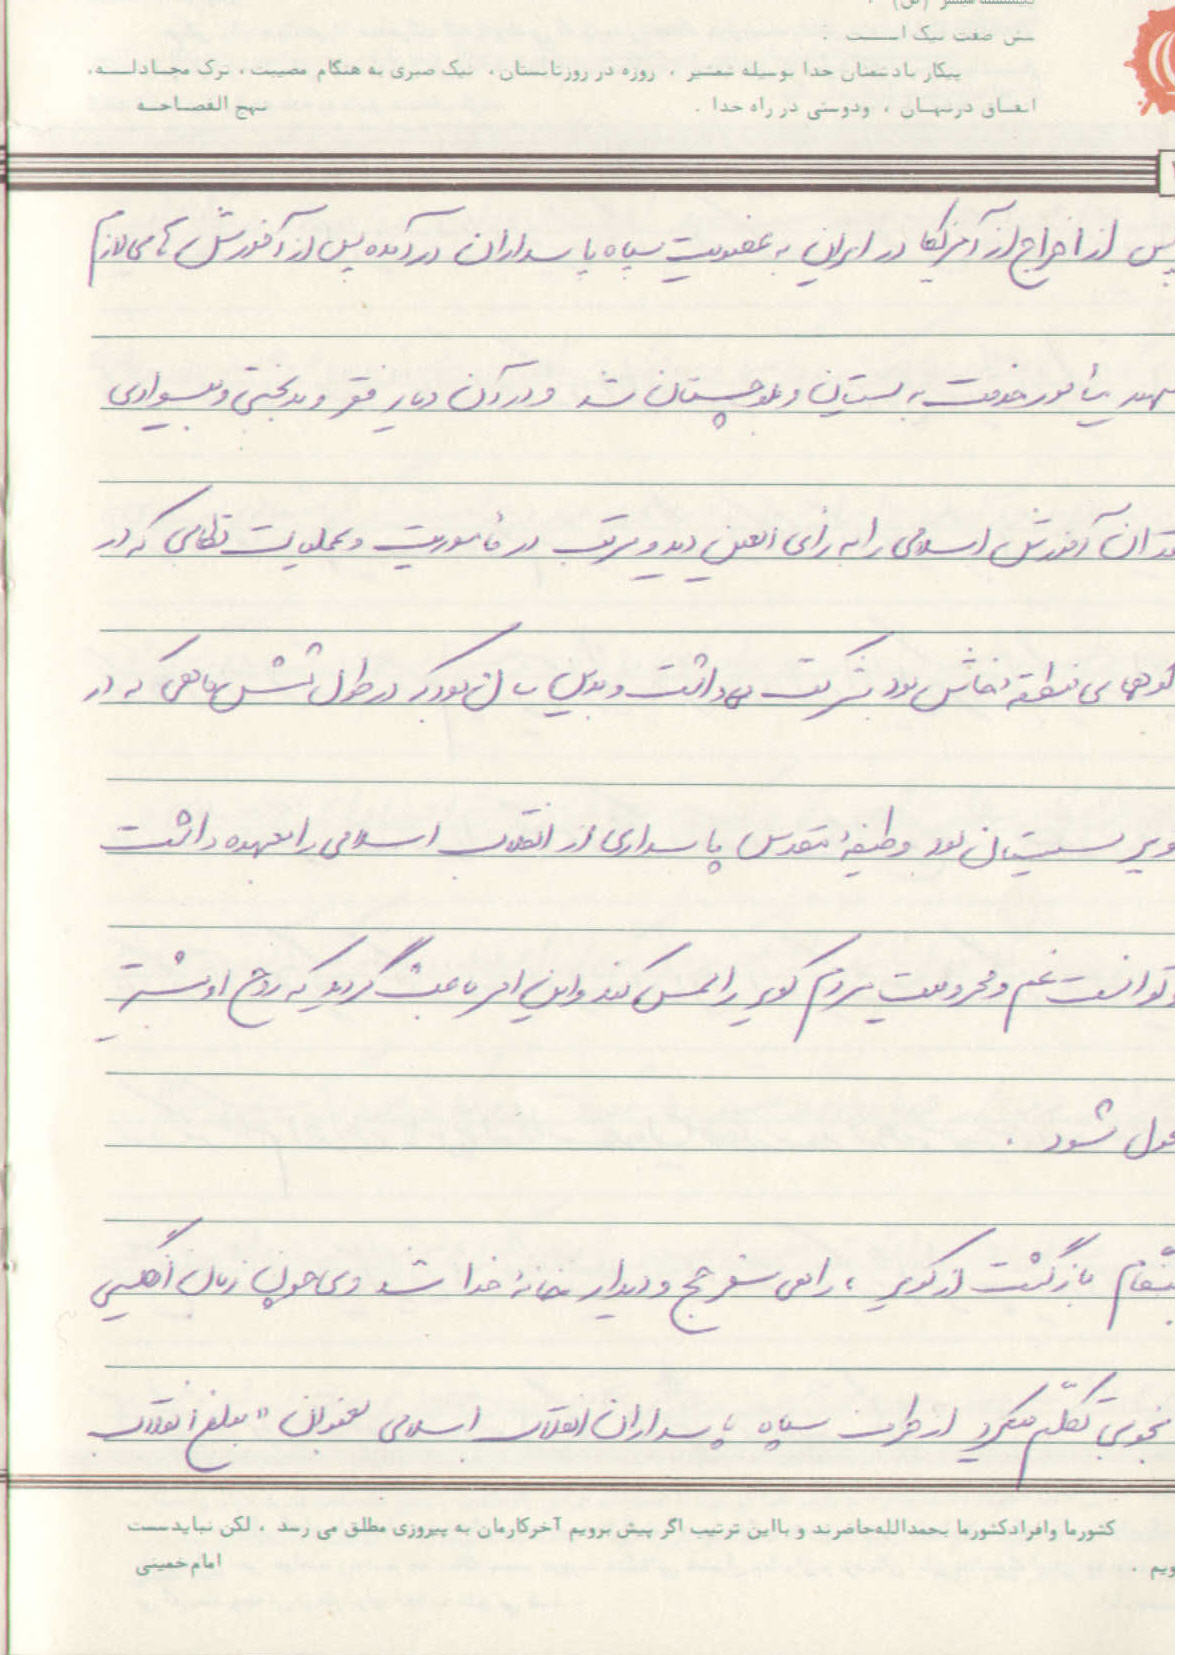 شش صفت نیک است :
پیکار با دشمنان خدا بوسیله شمشیر ، روزه در روز تابستان ، نیک صبری به هنگام مصیبت ، ترک مجادله،
انفاق در نهان ، ودوستی در راه خدا . نهج الفصاحه
پس از اخراج از آمریکا در ایران به عضویت سپاه پاسداران در آمده پس از آموزش های لازم
مأمور خدمت به سیستان و بلوچستان شد و در آن دیار فقر و بدبختی و بیسوادی
آموزش اسلامی را به رأی العین دید و مرتب در مأموریت و عملیات نظامی که در
منطقه خاش بود شرکت می داشت و بدین سان بود که در طول شش ماهی که در
سیستان بود وظیفهٔ مقدس پاسداری از انقلاب اسلامی را بعهده داشت
توانست غم و محرومیت مردم کویر را لمس کند و این امر باعث گردید که روح او بیشتر
شود .
بازگشت از کویر ، راهی سفر حج و دیدار خانهٔ خدا شد وی چون زبان انگلیسی
بخوبی تکلّم میکرد از طرف سپاه پاسداران انقلاب اسلامی بعنوان " مبلغ انقلاب
کشور ما وافراد کشور ما بحمدالله حاضرند و با این ترتیب اگر پیش برویم آخر کارمان به پیروزی مطلق می رسد ، لکن نباید سست
امام خمینی